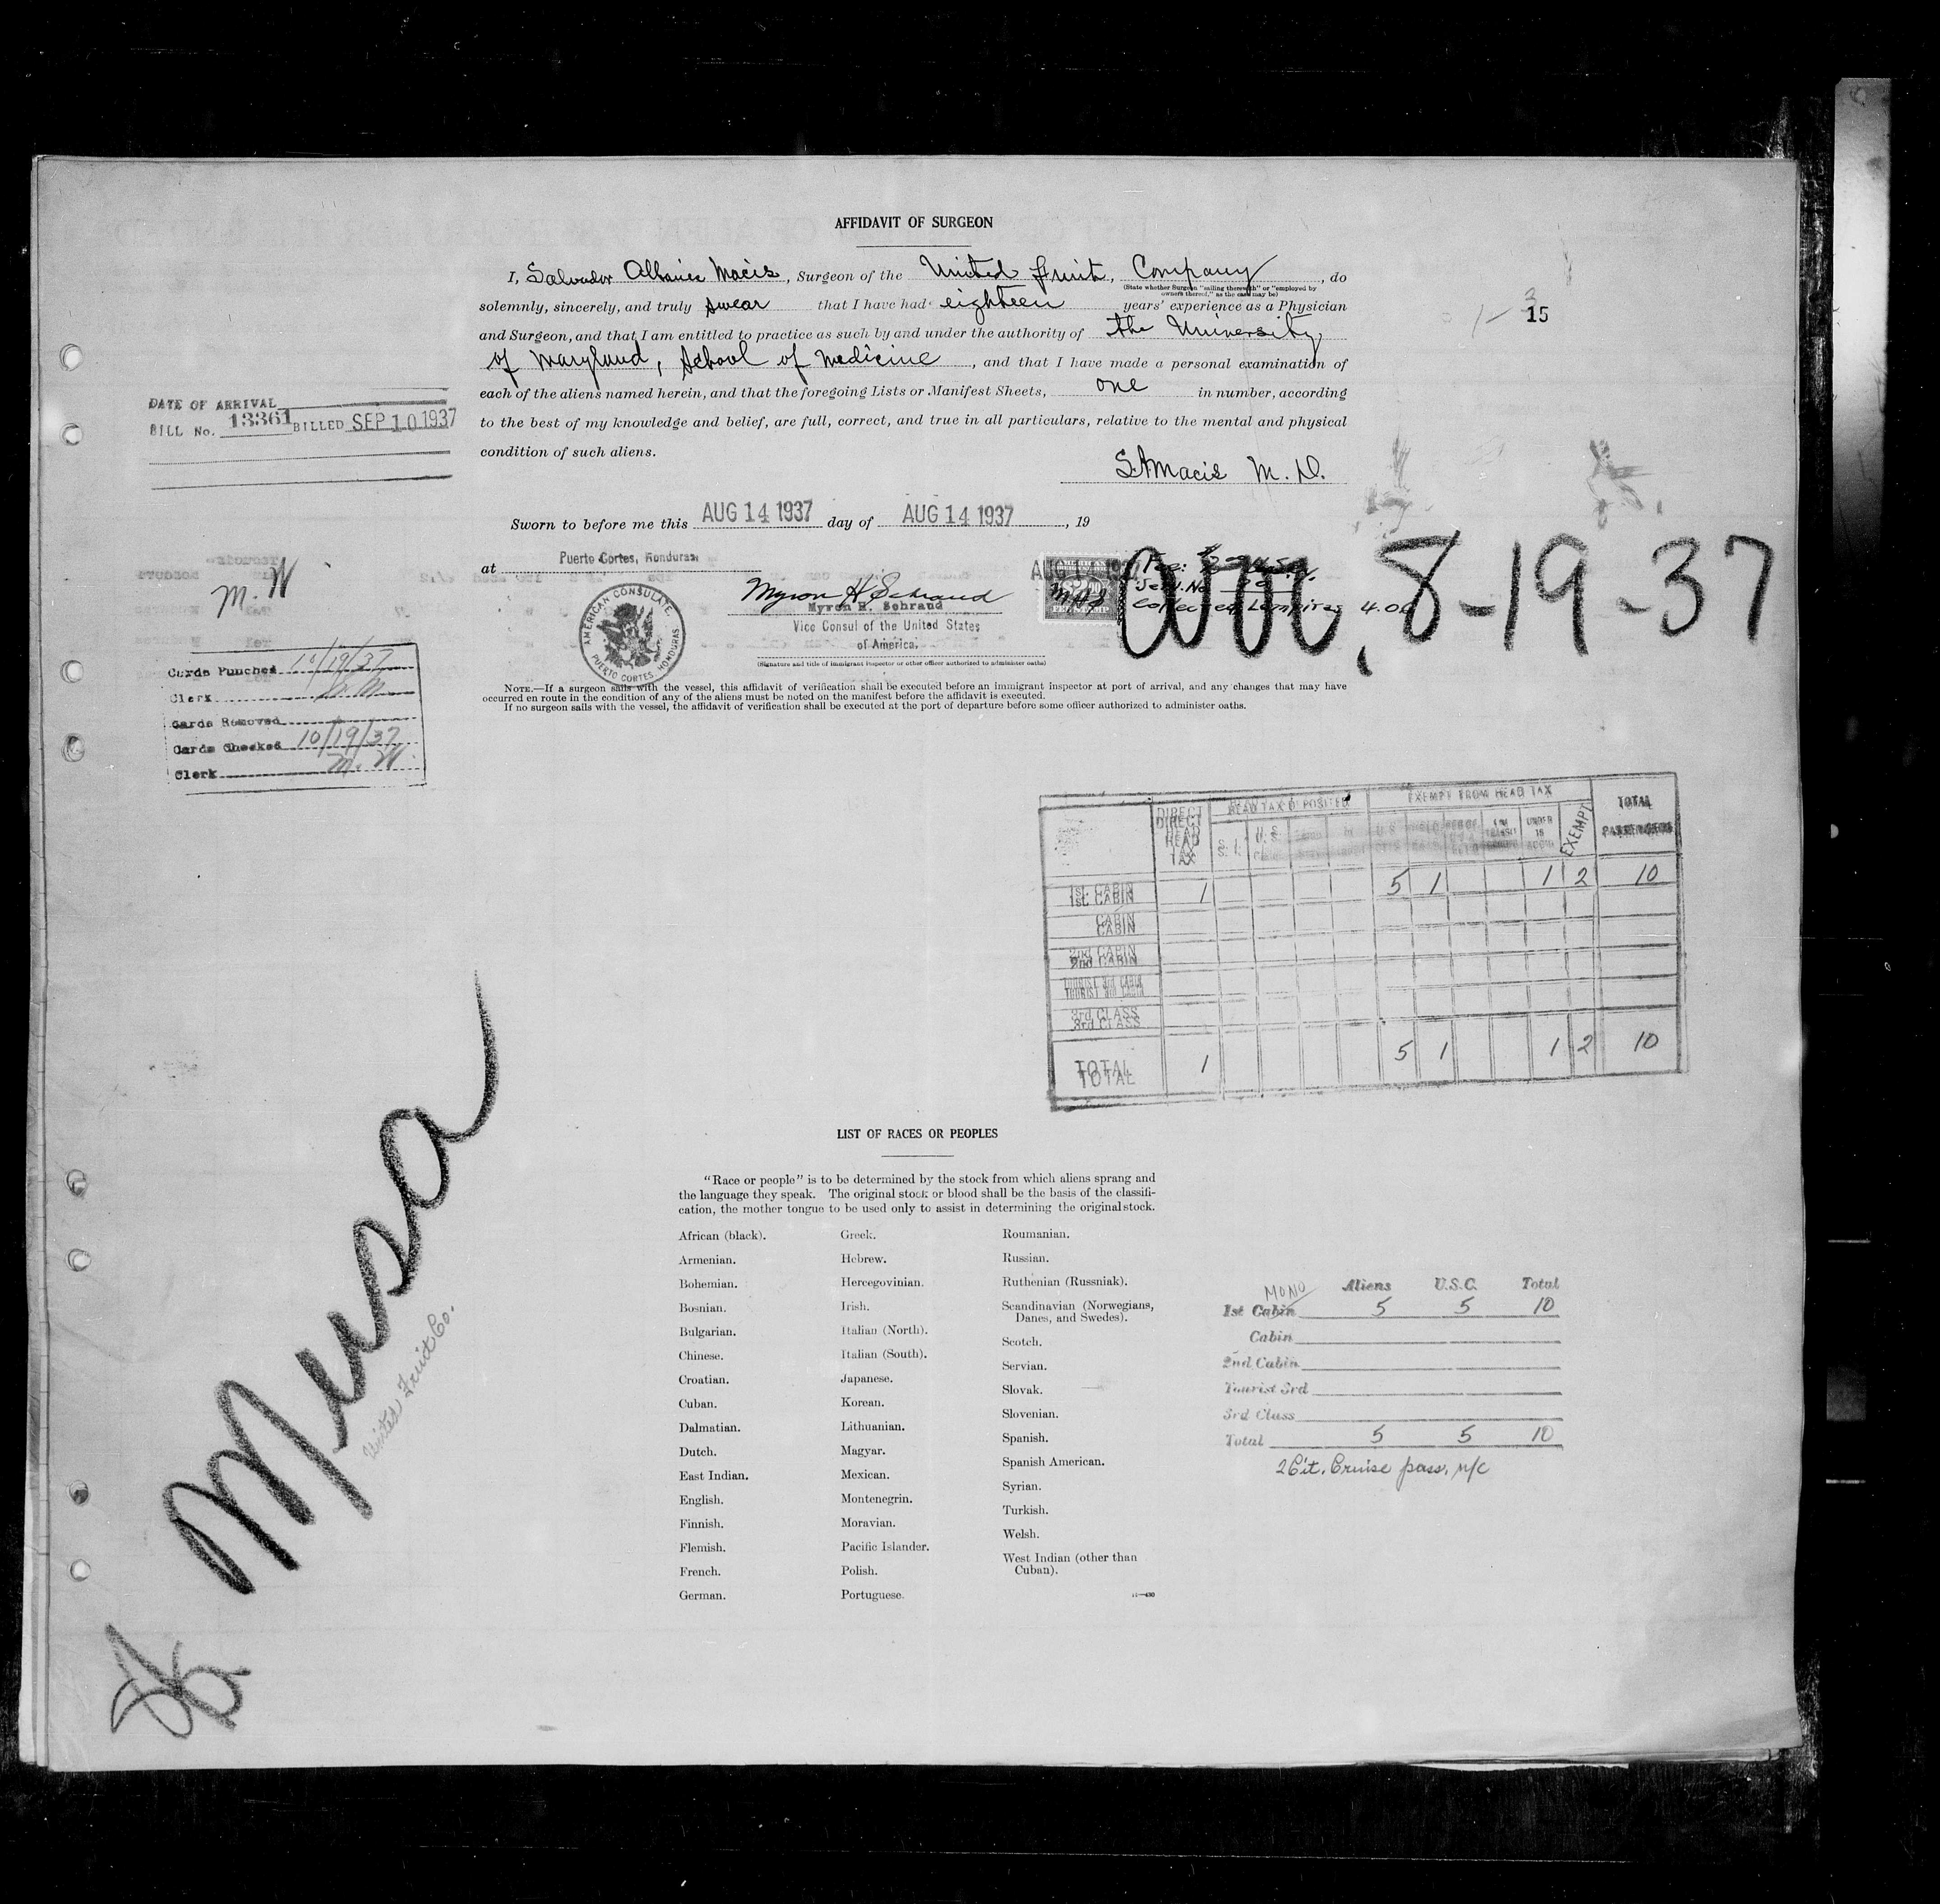 AFFIDAVIT OF SURGEON
I, Salvador Albanie Macis, Surgeon of the United Fruit, Company, do
(State whether Surgeon "sailing therewith" or "employed by owners thereof," as the case may be)
solemnly, sincerely, and truly swear that I have had eighteen years' experience as a Physician
and Surgeon, and that I am entitled to practice as such by and under the authority of the University
of Maryland, School of Medicine, and that I have made a personal examination of
each of the aliens named herein, and that the foregoing Lists or Manifest Sheets, one in number, according
to the best of my knowledge and belief, are full, correct, and true in all particulars, relative to the mental and physical
condition of such aliens.
S.A Macis M. D.
15
DATE OF ARRIVAL
BILL No. 13361 BILLED SEP 10 1937
Sworn to before me this AUG 14 1937 day of AUG 14 1937, 19
at Puerto Cortes, Honduras
AMERICAN CONSULATE, PUERTO CORTES, HONDURAS
Myron H. Schraud
Myron H. Schraud
Vice Consul of the United States
of America.
(Signature and title of immigrant inspector or other officer authorized to administer oaths)
Serv. No.
Collected Lempiras 4.00
8-19-37
M. W
Cards Punched 10/19/37
Clerk M M
Cards Removed
Cards Checked 10/19/37
Clerk M. W.
NOTE.—If a surgeon sails with the vessel, this affidavit of verification shall be executed before an immigrant inspector at port of arrival, and any changes that may have
occurred en route in the condition of any of the aliens must be noted on the manifest before the affidavit is executed.
If no surgeon sails with the vessel, the affidavit of verification shall be executed at the port of departure before some officer authorized to administer oaths.
DIRECT HEAD TAX HEAD TAX DEPOSITED EXEMPT FROM HEAD TAX EXEMPT TOTAL PASSENGERS
1st. CABIN 1 5 1 1 2 10
CABIN
2nd CABIN
TOURIST 3rd CABIN
3rd CLASS
TOTAL 1 5 1 1 2 10
Musa
United Fruit Co.
LIST OF RACES OR PEOPLES
"Race or people" is to be determined by the stock from which aliens sprang and
the language they speak. The original stock or blood shall be the basis of the classifi-
cation, the mother tongue to be used only to assist in determining the original stock.
African (black).
Armenian.
Bohemian.
Bosnian.
Bulgarian.
Chinese.
Croatian.
Cuban.
Dalmatian.
Dutch.
East Indian.
English.
Finnish.
Flemish.
French.
German.
Greek.
Hebrew.
Hercegovinian.
Irish.
Italian (North).
Italian (South).
Japanese.
Korean.
Lithuanian.
Magyar.
Mexican.
Montenegrin.
Moravian.
Pacific Islander.
Polish.
Portuguese.
Roumanian.
Russian.
Ruthenian (Russniak).
Scandinavian (Norwegians,
Danes, and Swedes).
Scotch.
Servian.
Slovak.
Slovenian.
Spanish.
Spanish American.
Syrian.
Turkish.
Welsh.
West Indian (other than
Cuban).
MONO Aliens U.S.C. Total
1st Cabin 5 5 10
Cabin
2nd Cabin
Tourist 3rd
3rd Class
Total 5 5 10
2 Cit. Cruise pass, n/c